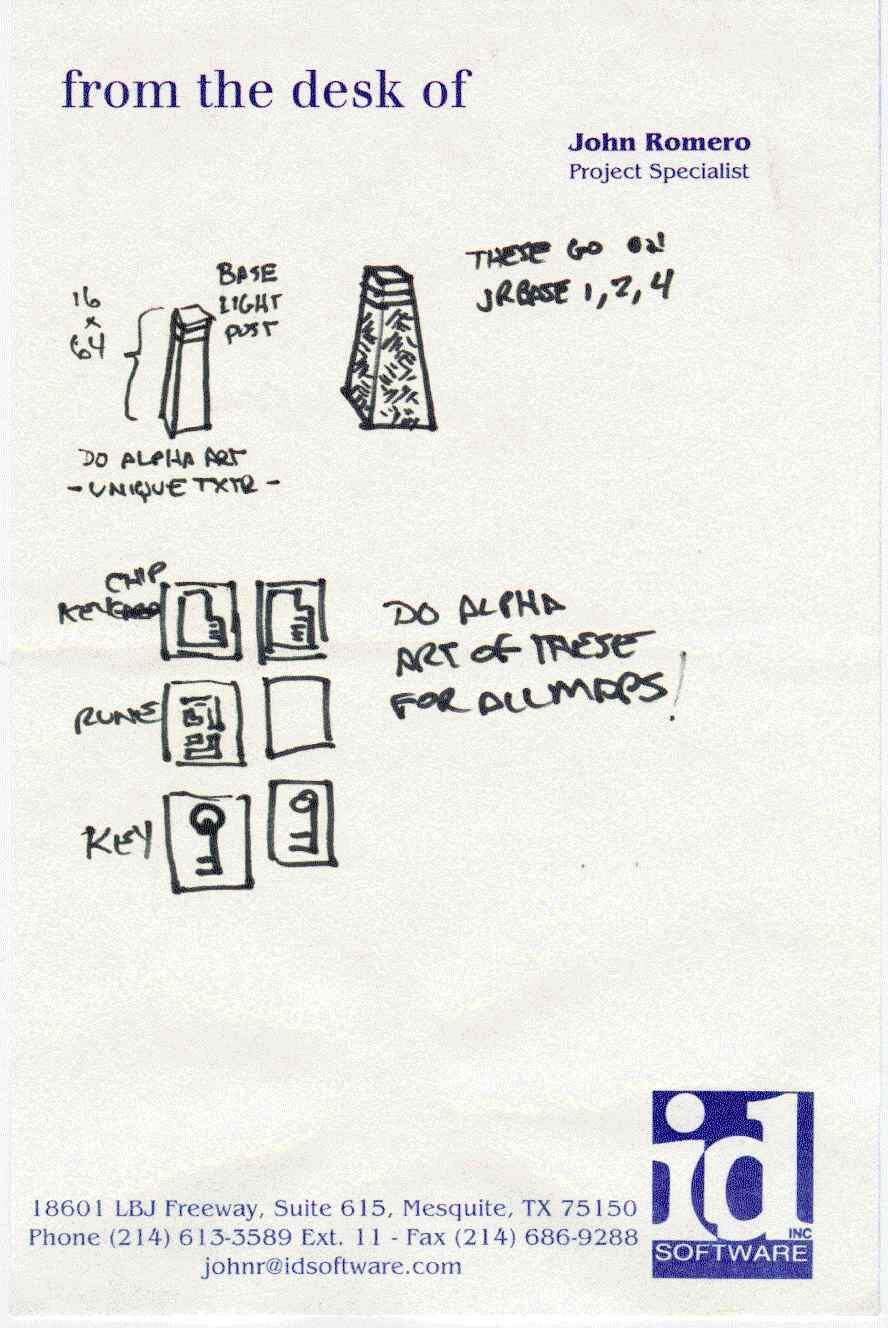 from the desk of
John Romero
Project Specialist
16
x
64
BASE
LIGHT
POST
THESE GO ON
JRBASE 1, 2, 4
DO ALPHA ART
- UNIQUE TXTR -
CHIP
KEY
RUNE
KEY
DO ALPHA
ART OF THESE
FOR ALL MAPS!
id
INC
SOFTWARE
18601 LBJ Freeway, Suite 615, Mesquite, TX 75150
Phone (214) 613-3589 Ext. 11 - Fax (214) 686-9288
johnr@idsoftware.com